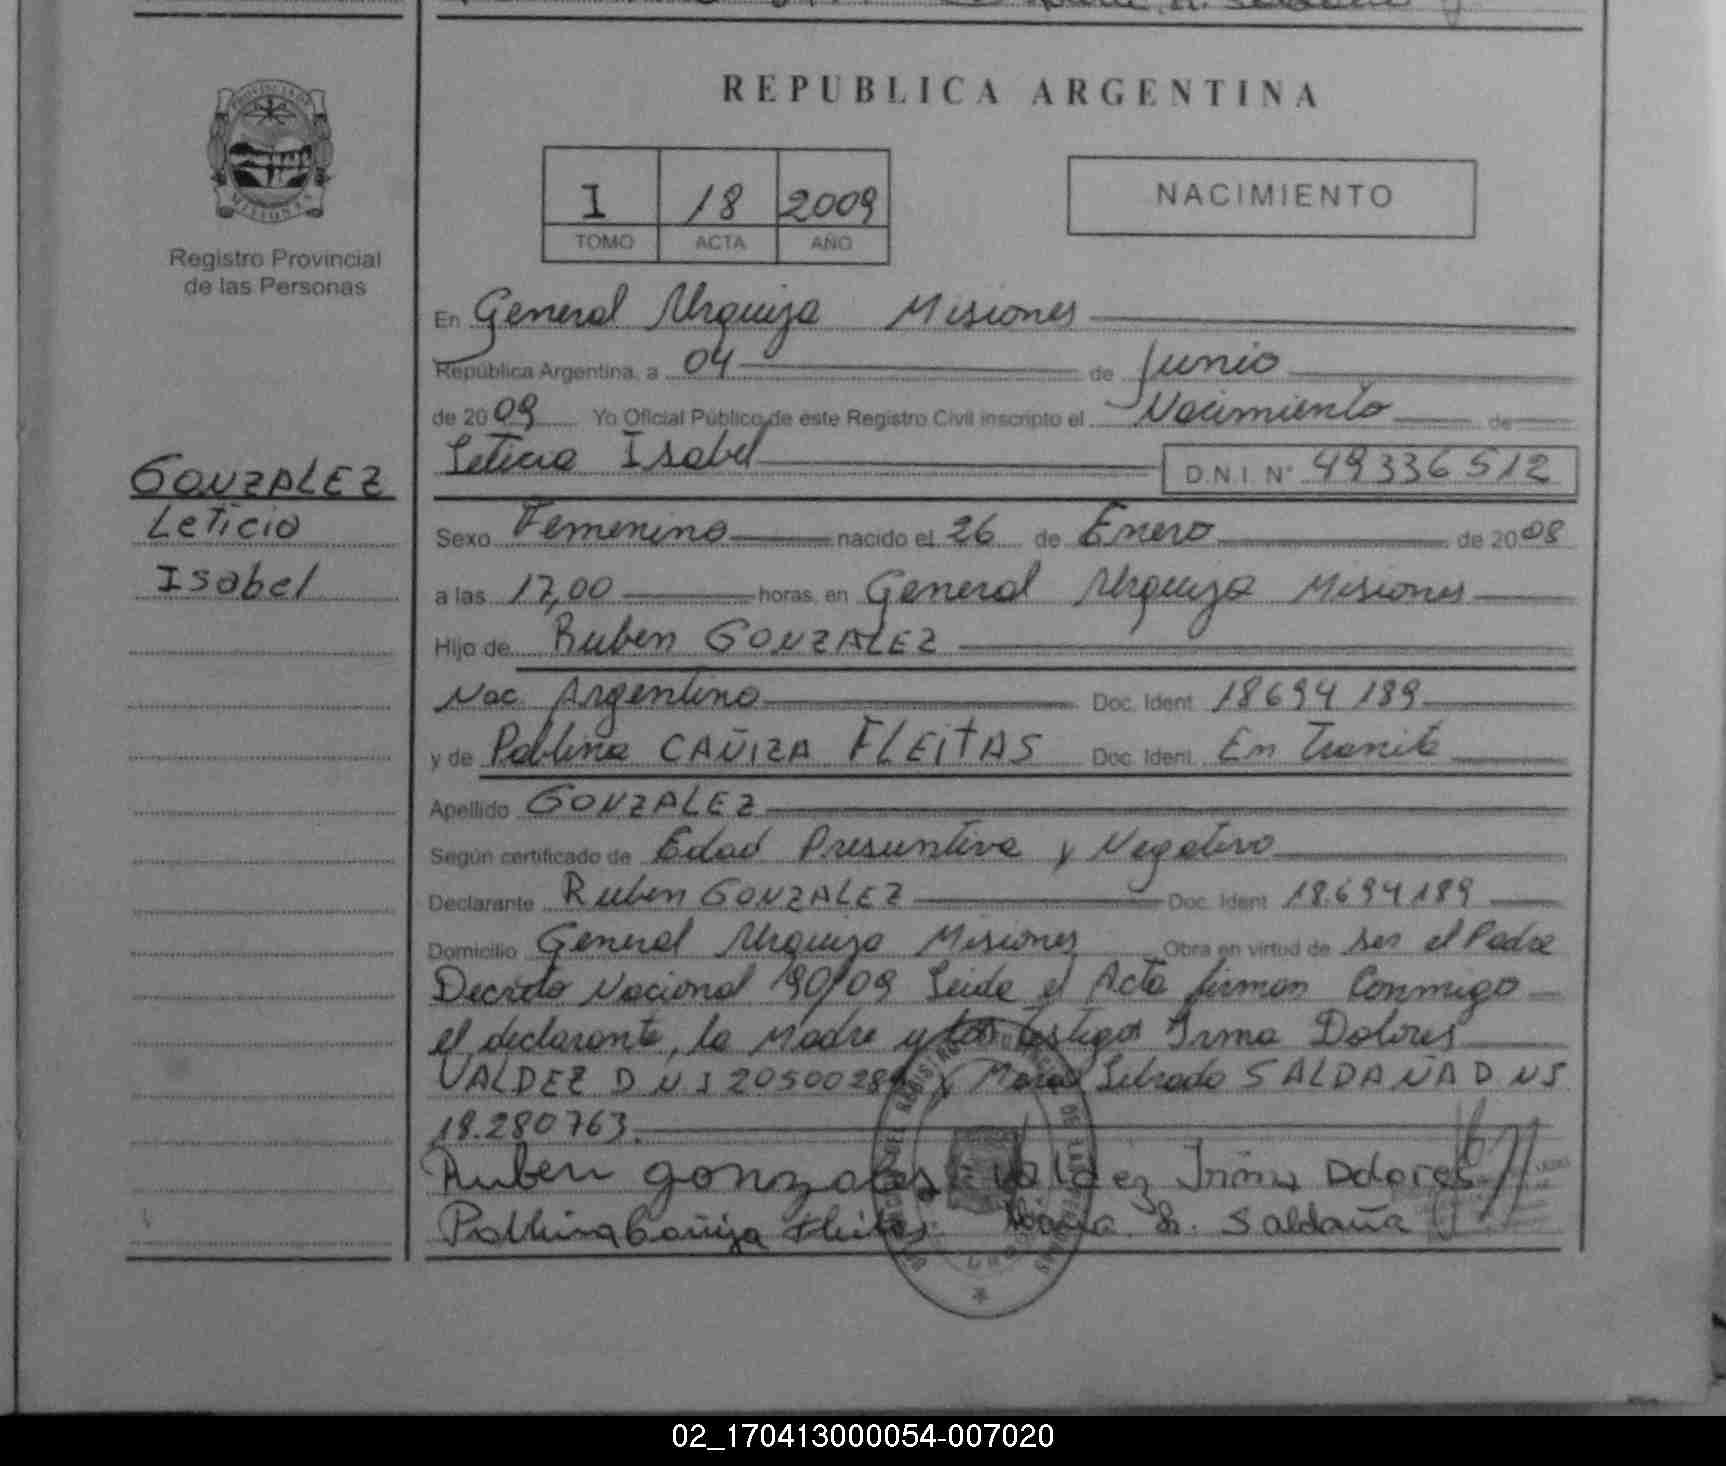 REPUBLICA ARGENTINA
PROVINCIA DE
MISIONES
Registro Provincial
de las Personas
I 18 2009
TOMO ACTA AÑO
NACIMIENTO
En General Urquiza Misiones
República Argentina, a 04 de Junio
de 2009 Yo Oficial Público de este Registro Civil inscripto el Nacimiento de
Leticia Isabel D.N.I. N° 49336512
GONZALEZ
Leticia
Isabel
Sexo Femenino nacido el 26 de Enero de 2008
a las 17,00 horas, en General Urquiza Misiones
Hijo de Ruben GONZALEZ
Nac. Argentino Doc. Ident. 18694189
y de Pablina CAÑIZA FLEITAS Doc. Ident. En Tramite
Apellido GONZALEZ
Según certificado de Edad Presuntiva y Negativo
Declarante Ruben GONZALEZ Doc. Ident. 18.694189
Domicilio General Urquiza Misiones Obra en virtud de ser el Padre
Decreto Nacional 90/09 Leida el Acta firman Conmigo
el declarante, la Madre y los testigos Irma Dolores
VALDEZ D N I 2050028 y SALDAÑA D N I
18.280763.
Ruben gonzales Valdez Irma Dolores
Pablina Cañiza Fleitas Saldaña
02_170413000054-007020